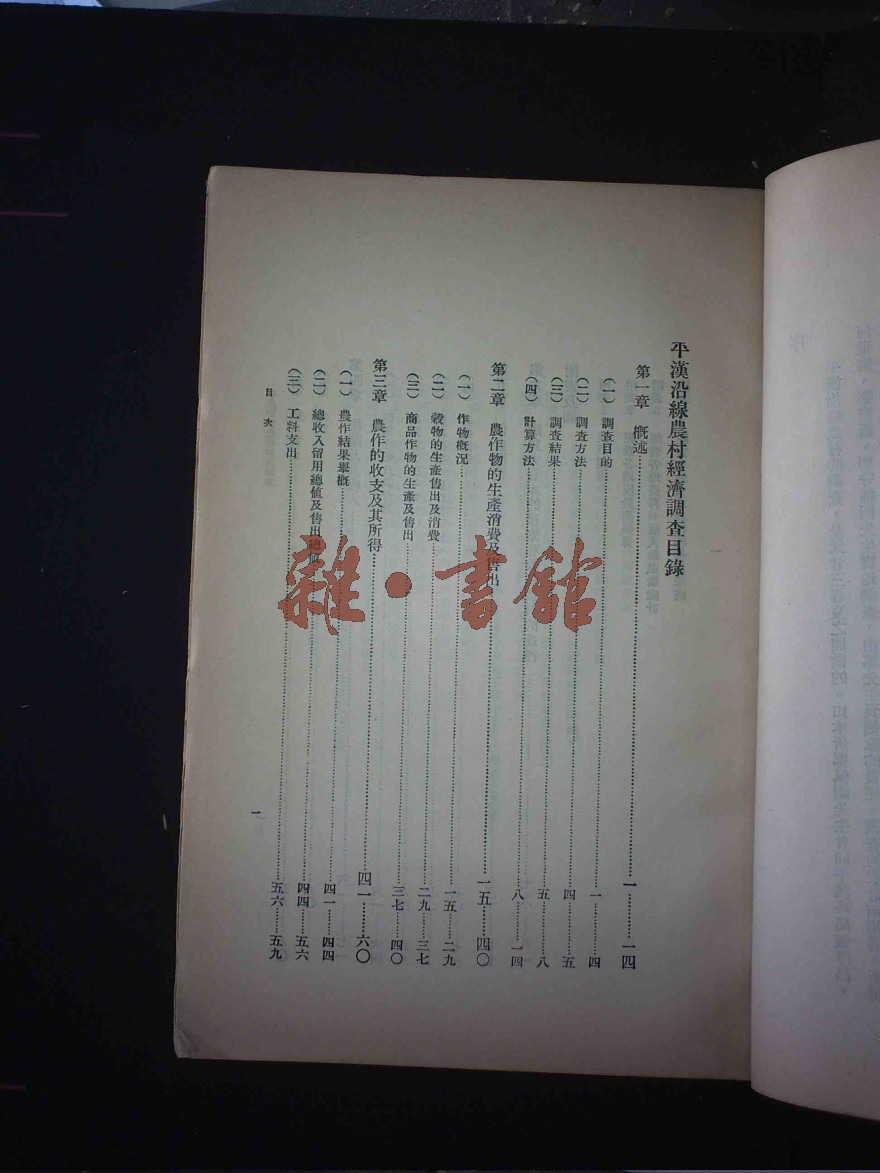 平漢沿線農村經濟調查目錄
第一章 概述……一……一四
(一) 調查目的……一……四
(二) 調查方法……四……五
(三) 調查結果……五……八
(四) 計算方法……八……一四
第二章 農作物的生產消費及售出……一五……四〇
(一) 作物概況……一五……二九
(二) 穀物的生產售出及消費……二九……三七
(三) 商品作物的生產及售出……三七……四〇
第三章 農作的收支及其所得……四一……六〇
(一) 農作結果畢概……四一……四四
(二) 總收入留用總值及售出總值……四四……五六
(三) 工料支出……五六……五九
目次
一
雜·書館
序